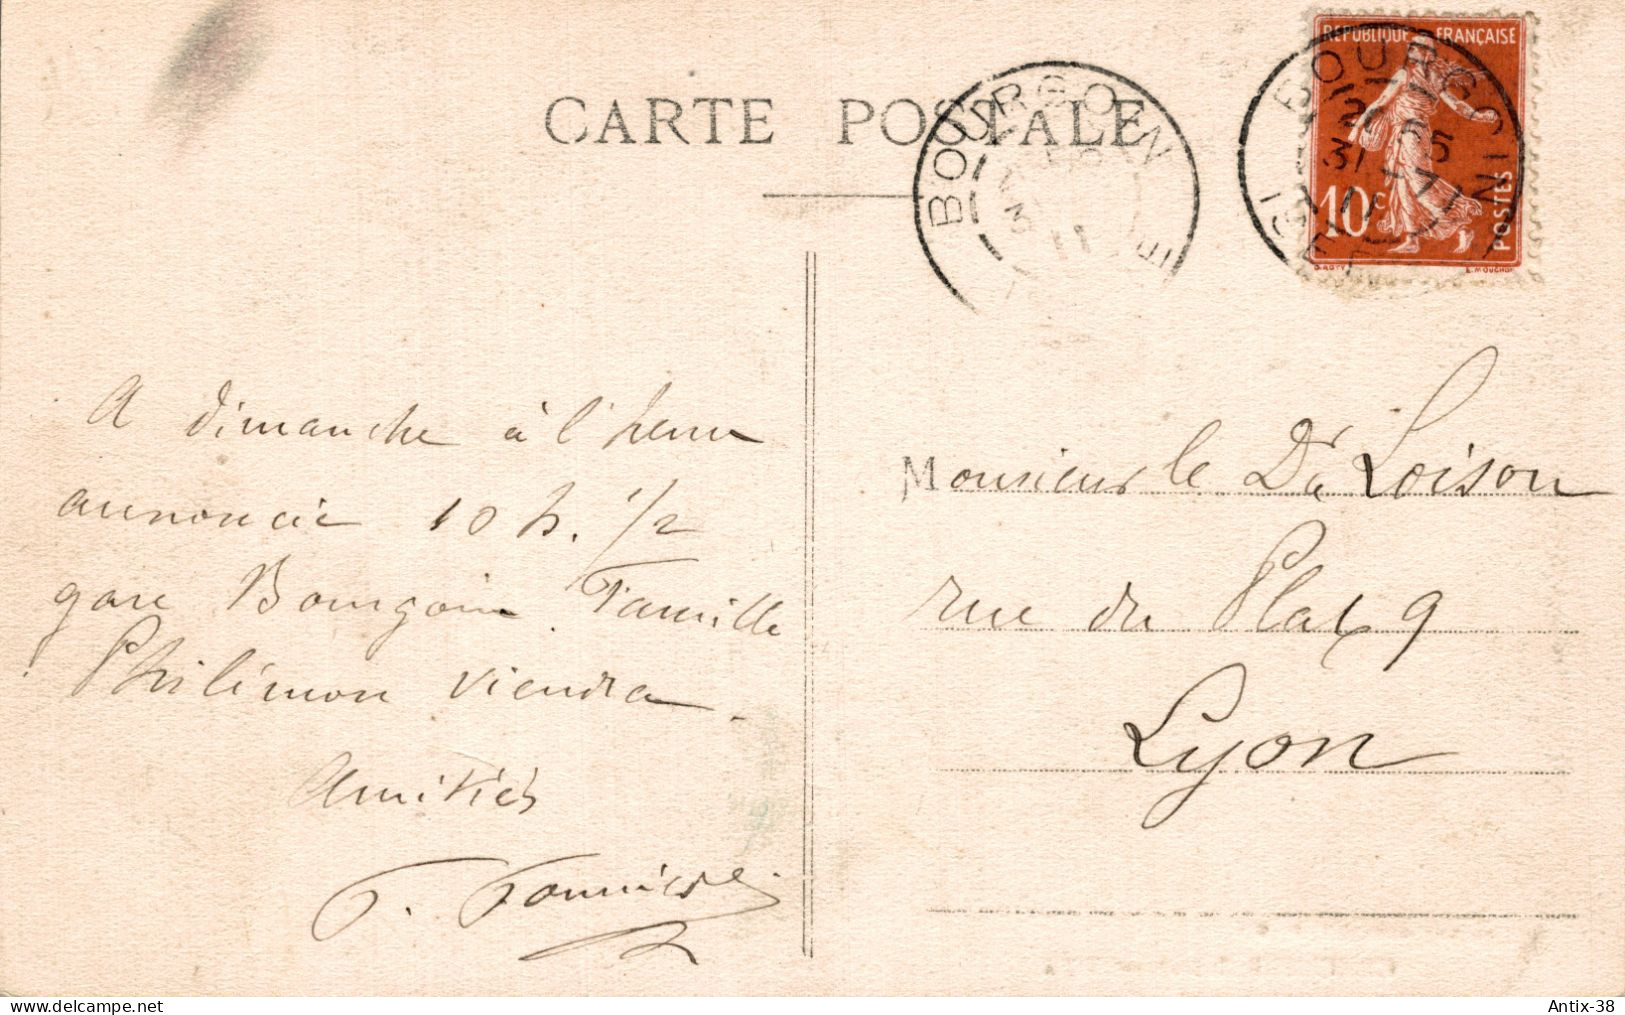 CARTE POSTALE
BOURGOIN
11
RÉPUBLIQUE FRANÇAISE
10 c
POSTES
BOURGOIN
31 5
11
ISÈRE
O. ROTY
E. MOUCHON
A dimanche à l'heure
annoncée 10 h. 1/2
gare Bourgoin. Famille
Philémon viendra.
Amitiés
Monsieur le Dr Loison
rue du Plat 9
Lyon
www.delcampe.net
Antix-38